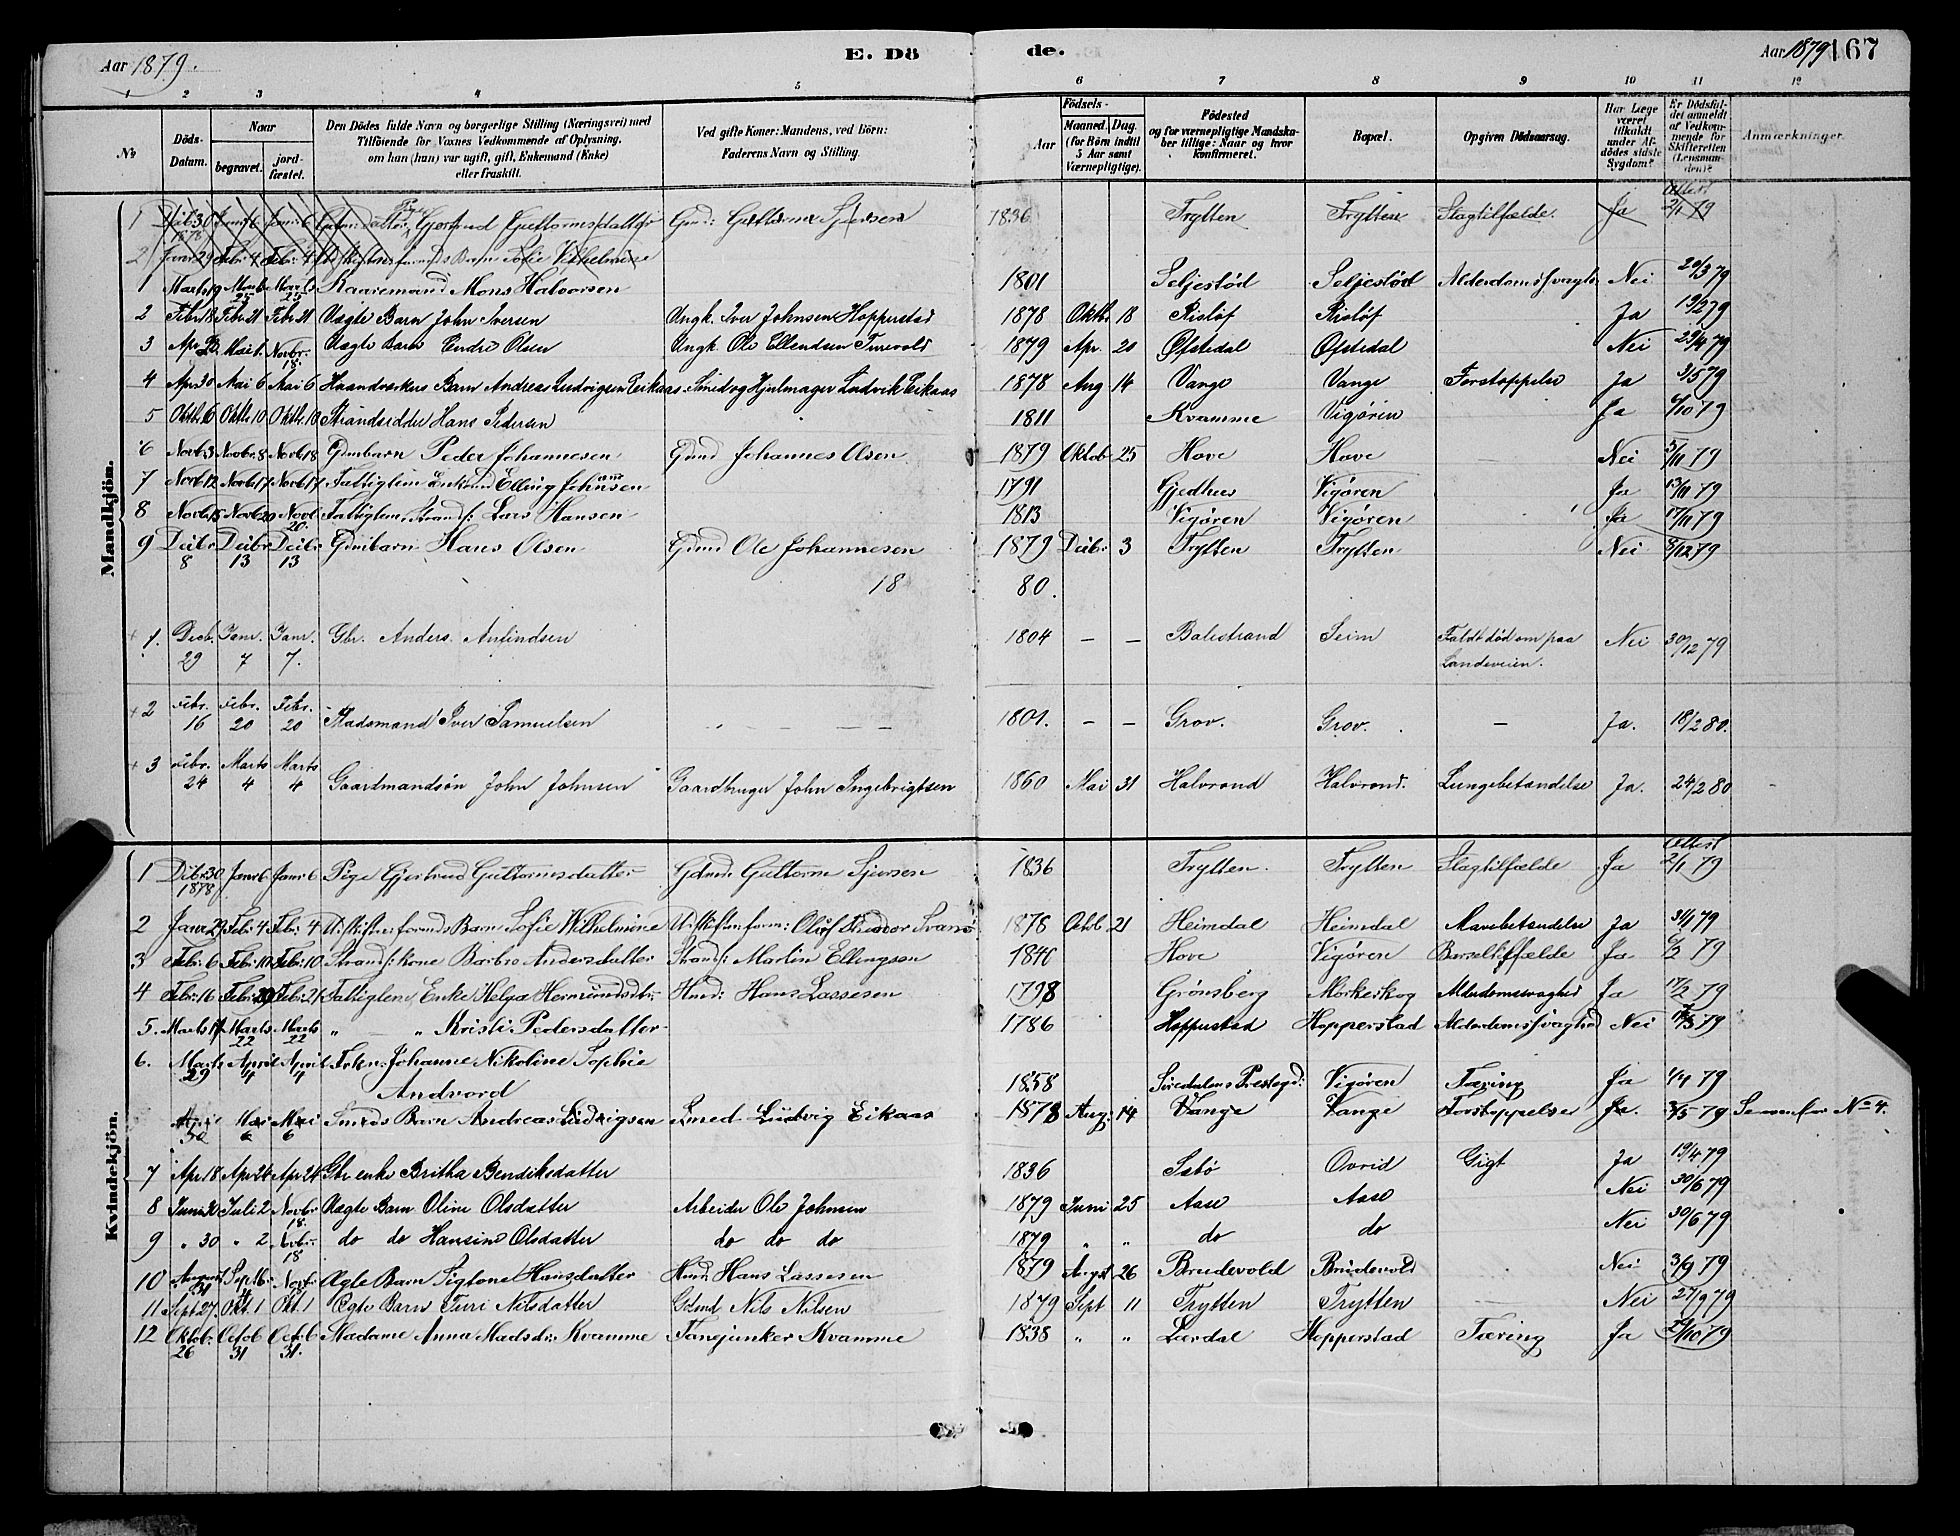 Aar 1879. E. Dö de. Aar 1879 167
1 2 3 4 5 6 7 8 9 10 11 12
No Döds-Datum. Naar begravet. jordfæstet. Den Dödes fulde Navn og borgerlige Stilling (Næringsvei) med Tilföiende for Voxnes Vedkommende af Oplysning, om han (hun) var ugift, gift, Enkemand (Enke) eller fraskilt. Ved gifte Koner: Mandens, ved Börn: Faderens Navn og Stilling. Aar Födsels- Maaned. Dag. (for Börn indtil 5 Aar samt Værnepligtige). Födested og for værnepligtige Mandskaber tillige: Naar og hvor konfirmeret. Bopæl. Opgiven Dödsaarsag. Har Læge været tilkaldt under Afdödes sidste Sygdom? Er Dödsfaldet anmeldt af Vedkommende for Skifteretten (Lensmanden)? Anmærkninger.
Mandkjön.
1 Debr 30 1878 Janr 6 Janr 6 Pige Gjertrud Guttormsdatter Gmd: Guttorm Sjursen 1836 Trytten Trytten Slagtilfælde. Ja Attest 2/1 79
2 Janr 29 Febr 4 Febr 4 Barn Sofie Vilhelmine
1 Marts 19 Marts 25 Marts 25 Kaaremand Mons Halvorsen 1801 Seljestød Seljestød Alderdomssvaghe Nei 20/3 79
2 Febr 18 Febr 21 Febr 21 Uægte Barn John Iversen Ungk. Iver Johnsen Hopperstad 1878 Oktbr 18 Risløf Risløf Ja 19/2 79
3 Apr 23. Mai 1. Novbr. 18. Uægte Barn Endre Olsen Ungk. Ole Ellendsen Turvold 1879 Apr. 20 Ofstedal Ofstedal Nei 23/4 79
4 Apr 30 Mai 6 Mai 6 Haandværkers Barn Andreas Ludvigsen Eikaas Smed og Hjulmager Ludvik Eikaas 1878 Aug 14 Vange Vange Forstoppelse Ja 3/5 79
5 Oktbr 6 Oktbr. 10 Oktbr. 10 Strandsidder Hans Pedersen 1811 Kvamme Vigøren Ja 6/10 79
6 Novb 3 Novbr 8 Novb 18 Gdmbarn Peder Johannesen Gmd Johannes Olsen 1879 Oktob 25 Hove Hove — Nei 5/11 79
7 Novb 12 Novb 17 Novb 17 Fattiglem Enkemd Elling Johansen 1791 Gjedhus Vigøren Ja 13/11 79
8 Novb 15 Novb 20 Novb 20. Fattiglem, Strands: Lars Hansen 1813 Vigøren Vigøren Ja 17/11 79
9 Debr 8 Debr 13 Debr 13 Gdmbarn Hans Olsen Gdmd Ole Johannesen 1879 Debr 3 Trytten Trytten Nei 8/12 79
18 80.
+ 1. Decb. 29 Janr. 7 Janr. 7. Gbr. Anders Anfindsen 1804 — — Balestrand Seim Faldt død om paa Landeveien. Nei 30/12 79
+ 2 Febr. 16 Febr. 20 Febr. 20 Stadsmand Iver Samuelsen 1801. — — Grov. Grov. — Ja. 18/2 80.
+ 3 Febr. 24 Marts 4 Marts 4 Gaardmandsøn John Johnsen Gaardbruger John Ingebrigtsen 1860 Mai 31 Halvrand Halvrand. Lungebetændelse Ja. 24/2 80
Kvindekjön.
1 Debr 30 1878 Janr 6 Janr 6 Pige Gjertrud Guttormsdatter Gdmd: Guttorm Sjursen 1836 Trytten. Trytten Slagtilfælde Ja Attest 2/1 79
2 Janr 29 Febr. 4 Febr. 4 Barn Sofie Wilhelmine 1878 Octb 21 Heimdal Heimdal Mavebetændelse Ja 31/1 79
3 Febr. 6 Febr. 10 Febr. 10 Strands: kone Barbro Andersdatter Strands: Martin Ellingsen 1840 Hove Vigøren Barseltilfælde Ja 6/2 79
4 Febr. 16 Febr. 21 Febr. 21 Fattiglem Enke Helga Hermundsdtr Hmd: Hans Lassesen 1798 Grønsberg Morkeskog Alderdomssvaghed Ja 17/2 79
5. Marts 17 Marts 22 Marts 22 " — " Kristi Pedersdatter 1786 Hopperstad Hopperstad Alderdomssvaghed Nei 18/3 79
6. Marts 29 April 4 April 4 Frkn. Johanne Nikoline Sophie
Andvord 1858 Vigøren Tæring Ja 1/4 79
April 30 Mai 6 Mai 6 Smeds Barn Andreas Ludvigsen Smed Ludvig Eikaas 1878 Aug: 14 Vange Vange Forstoppelse Ja. 3/5 79 No 4.
7 Apr 18 Apr 24 Apr 24 Gbr enke Britha Bendiksdatter 1836 Sabø Ovrid Gigt Ja 19/4 79
8 Juni 30 Juli 2 Novbr 18. Uægte Barn Oline Olsdatter Arbeider Ole Johnsen 1879 Juni 25 Aase Aase Nei 30/6 79
9 " 30 " 2 Novbr. 18 do do Hansine Olsdatter do do do 1879 " " do do Nei 30/6 79
10 August 31 Septb Novbr Ægte Barn Sigtone Hansdatter Hmd: Hans Lassesen 1879 Augst 26 Brudevold Brudevold Nei 3/9 79
11 Sept 27. Okt. 1 Okt. 1 Ægte Barn Turi Nilsdatter Gdmd Nils Nilsen 1879 Sept 11 Trytten Trytten — Nei 27/9 79
12 Oktob. 26 Octob 31 Octob 31. Madame Anna Madsdr. Kvamme Fanejunker Kvamme 1838 " " Lærdal Hopperstad Tæring Ja 27/10 79